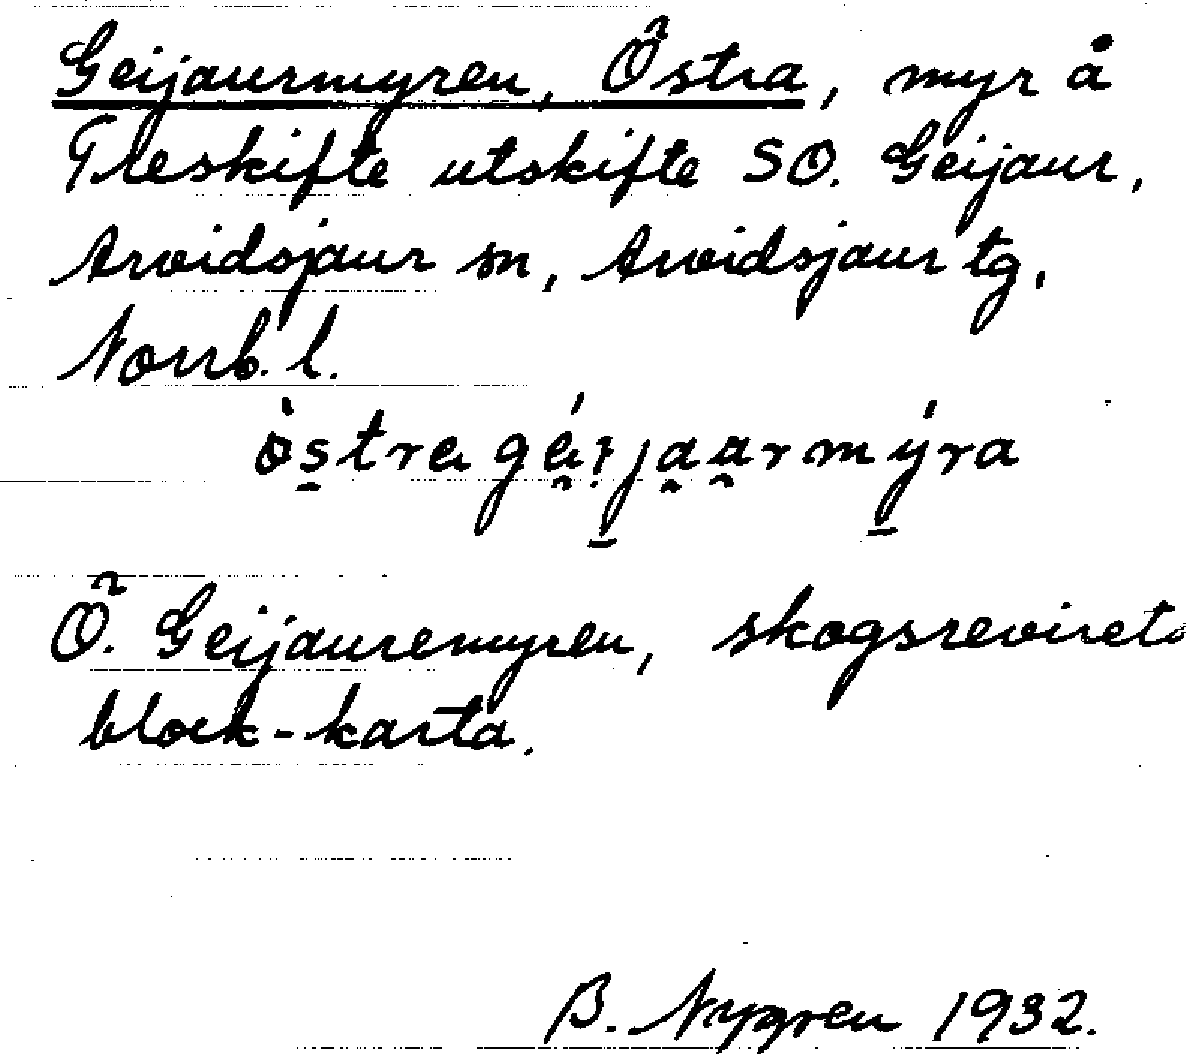 Geijaurmyren, Östra, myr å
Treskifte utskifte SO. Geijaur,
Arvidsjaur sn, Arvidsjaur tg,
Norrb. l.
östra géijaarmýra
Ö. Geijauremyren, skogsrevirets
block-karta.
B. Nygren 1932.